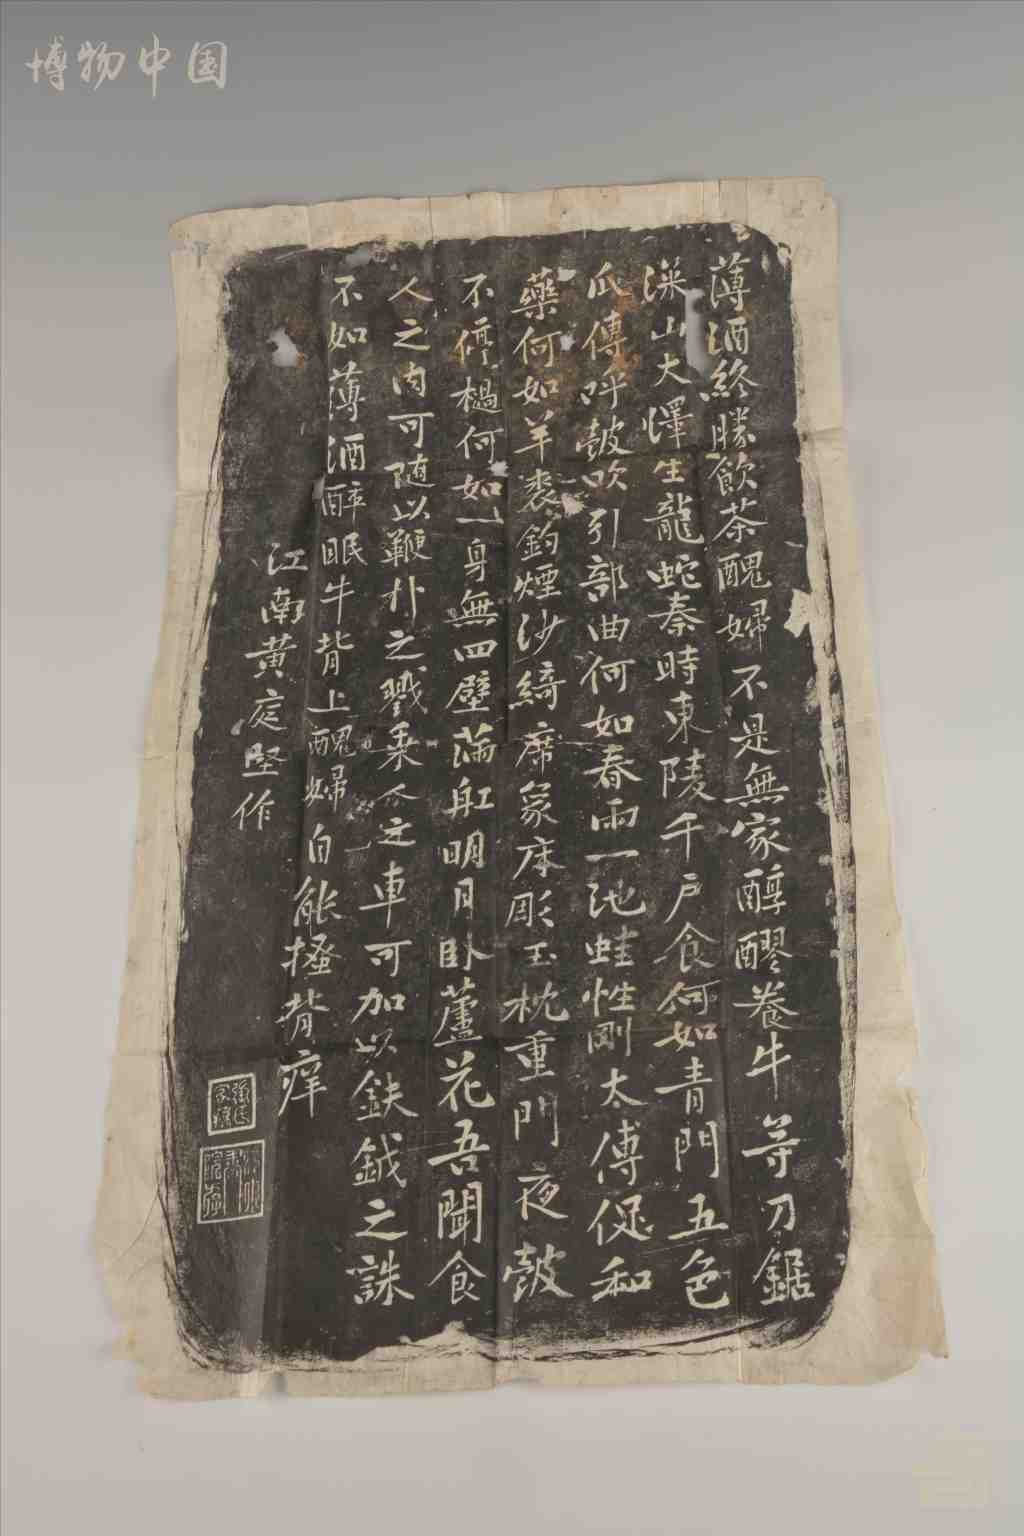 博物中国
薄酒終勝飲茶醜婦不是無家醇醪養牛等刀鋸
深山大澤生龍蛇秦時東陵千戶食何如青門五色
瓜傳呼鼓吹引部曲何如春雨一池蛙性剛太傅促和
藥何如羊裘釣煙沙綺席象床彫玉枕重門夜鼓
不停檛何如一身無四壁滿船明月臥蘆花吾聞食
人之肉可隨以鞭朴之戮乘人之車可加以鈇鉞之誅
不如薄酒醉眠牛背上醜婦自能搔背痒
江南黃庭堅作